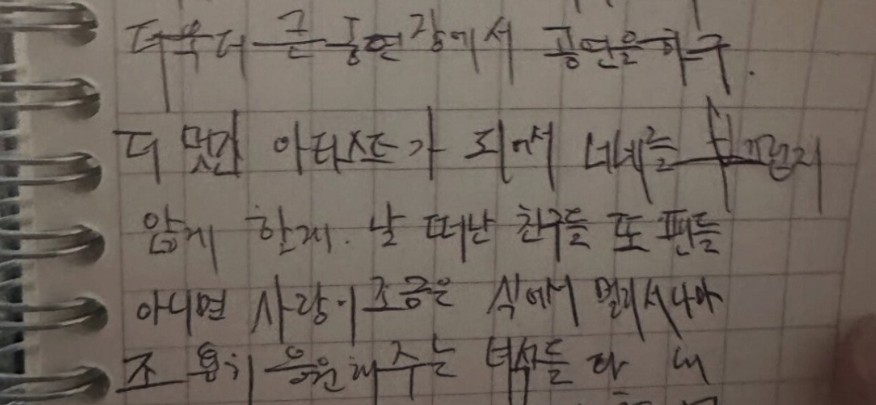 더욱더 큰 공연장에서 공연을 하구.
더 멋진 아티스트가 되어서 너네를 부끄럽지
않게 할게. 날 떠난 친구들 또 팬들
아니면 사랑이 조금은 식어서 멀리서나마
조용히 응원해주는 녀석들 다 내